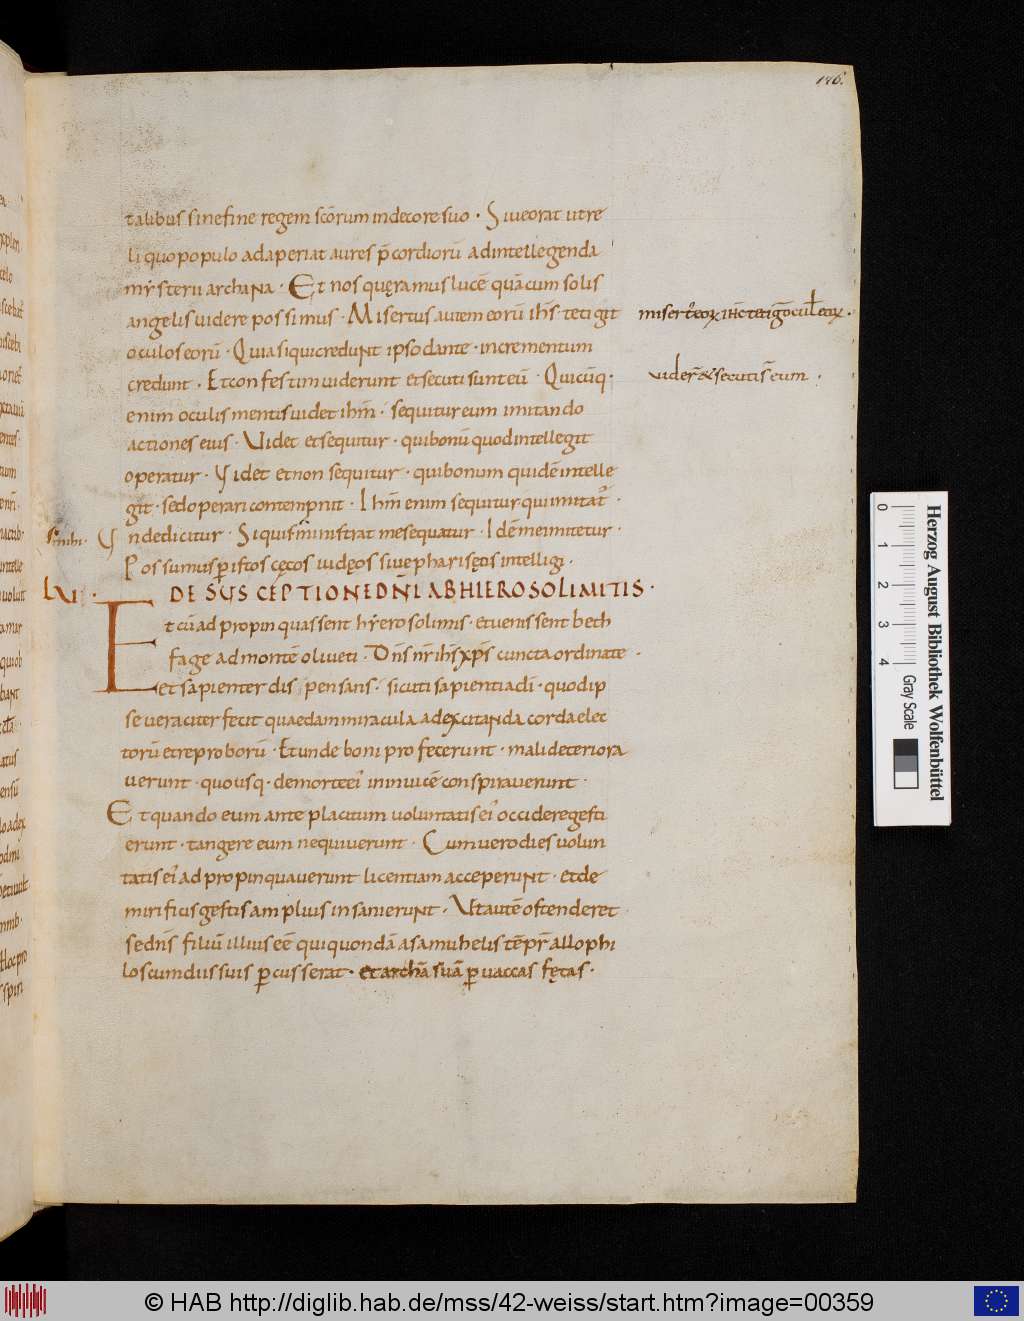 176.
talibus sinefine regem scōrum indecore suo · Siueorat utre
li quo populo adaperiat aures p̄cordiorū adintellegenda
mẏsterii archana · Et nos quęramus lucē quā cum solis
angelis uidere possimus · Misertus autem eorū ih̄s · tetigit
oculos eorū · Quia siqui credunt ipso dante · incrementum
credunt · Et confestim uiderunt et secuti sunt eū · Quicūq·
enim oculis mentis uidet ih̄m · sequitur eum imitando
actiones eius · Uidet et sequitur · qui bonū quod intellegit
operatur · Uidet et non sequitur · qui bonum quidē intelle
git · sed operari contempnit · Ihm̄ enim sequitur qui imitat᷒ ·
Un dedicitur · Siquis mihi ministrat me sequatur · Idē me imitetur ·
Possumus p istos cęcos iudęos siue pharisęos intelligi ·
LXI · DE SUSCEPTIONE DN̄I AB HIEROSOLIMITIS ·
Et cū adpropinquassent hẏerosolimis · et uenissent beth
fage ad montē oliueti · Dn̄s nr̄ ih̄s xp̄s cuncta ordinate ·
et sapienter dispensans · sicuti sapientia dī · quod ip
se ueraciter fecit quaedam miracula ad excitanda corda elec
torū et reproborū · Et unde boni profecerunt · mali deteriora
uerunt · quousq· de morte ei᷒ in inuicē conspirauerunt ·
Et quando eum ante placitum uoluntatis ei᷒ occidere gesti
erunt · tangere eum nequiuerunt · Cum uero dies uolun
tatis ei᷒ adpropinquauerunt licentiam acceperunt · et de
mirificis gestis amplius insanierunt · Ut autē ostenderet
se dn̄s filiū illius eē qui quondā asamuhelis tēpr̄ allophi
los cum diis suis p cusserat · et archā suā p uaccas fętas ·
misert᷒ eoꝝ ih̄c tetig̅ ocul̅ eoꝝ ·
uider̅ & secuti s̅ eum ·
Herzog August Bibliothek Wolfenbüttel
0 1 2 3 4
Gray Scale
© HAB http://diglib.hab.de/mss/42-weiss/start.htm?image=00359